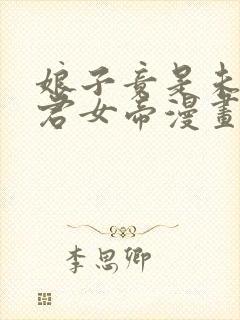 娘子竟是未
君女帝漫畫
李思卿